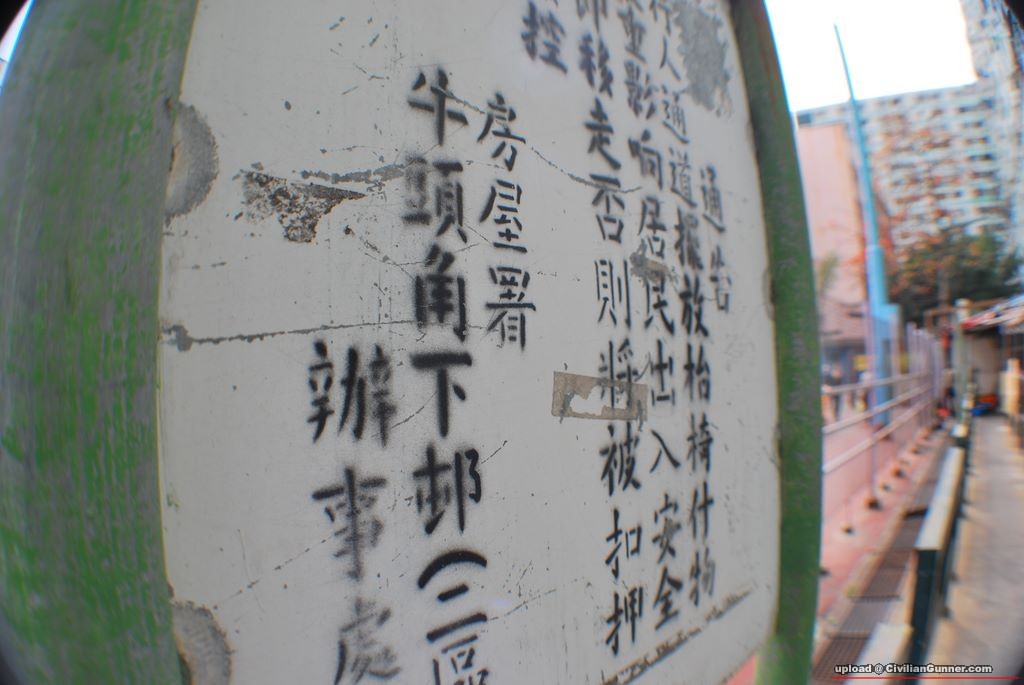 通告
行人通道擺放枱椅什物
重影响居民出入安全
即移走否則將被扣押
控
房屋署
牛頭角下邨(二區
辦事處
upload @ CivilianGunner.com